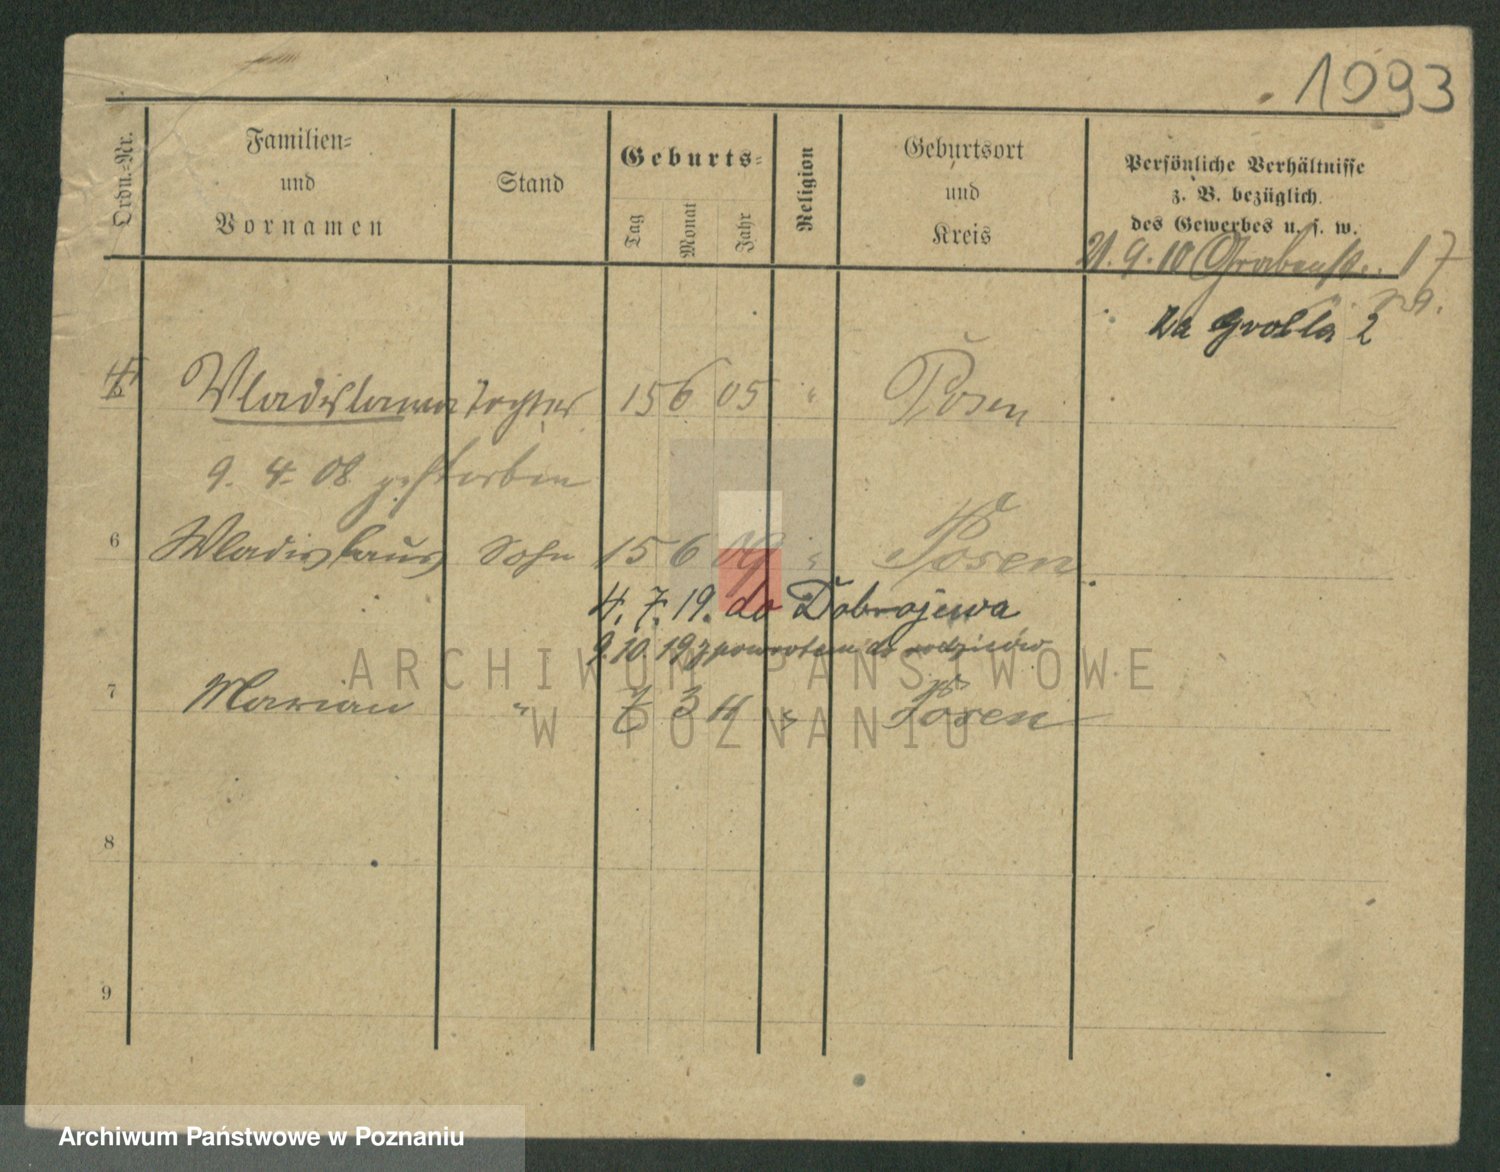 1093
Ordn.-Nr.
Familien-
und
Vornamen
Stand
Geburts-
Tag
Monat
Jahr
Religion
Geburtsort
und
Kreis
Persönliche Verhältnisse
z. B. bezüglich
des Gewerbes u. s. w.
21.9.10 Grabenstr. 17
Za Groblą 2
Vladislawa Tochter 15 6 05 " Posen
9. 4. 08 gestorben
6 Wladislaus Sohn 15 6 09 " Posen
4. 7. 19. do Dobrojewa
9.10.19 z powrotem do rodziców
7 Marian " 7 3 11 " Posen
8
9
ARCHIWUM PAŃSTWOWE
W POZNANIU
Archiwum Państwowe w Poznaniu